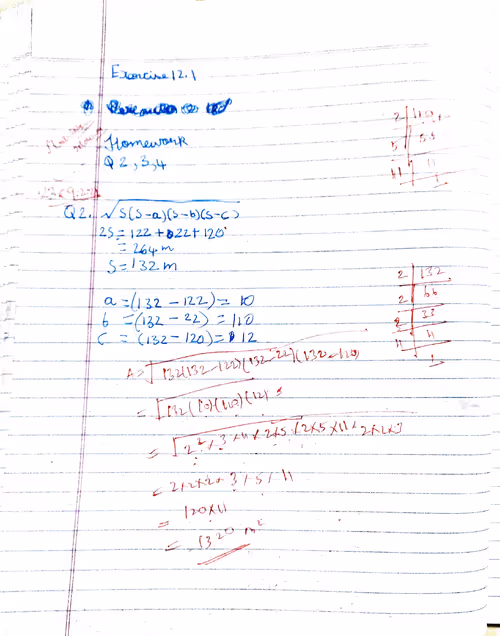 Exercise 12.1
Homework
Q 2, 3, 4
Q2. √S(S-a)(S-b)(S-c)
2S = 122 + 22 + 120
= 264 m
S = 132 m
a = (132 - 122) = 10
b = (132 - 22) = 110
c = (132 - 120) = 12
A = √132(132-122)(132-22)(132-120)
= √132(10)(110)(12)
= √2² × 3 × 11 × 2×5 × 2×5×11 × 2×2×3
= 2×2×2×3×5×11
= 120×11
= 1320 m²
2 | 110
5 | 55
11 | 11
1
2 | 132
2 | 66
33
11 | 11
1